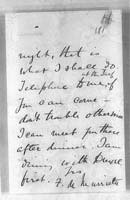 right, that is
what I shall do.
Telephone
you can come -
don't trouble otherwise
I can meet you there
after dinner. I am
dining with
first. Yrs
F. M.